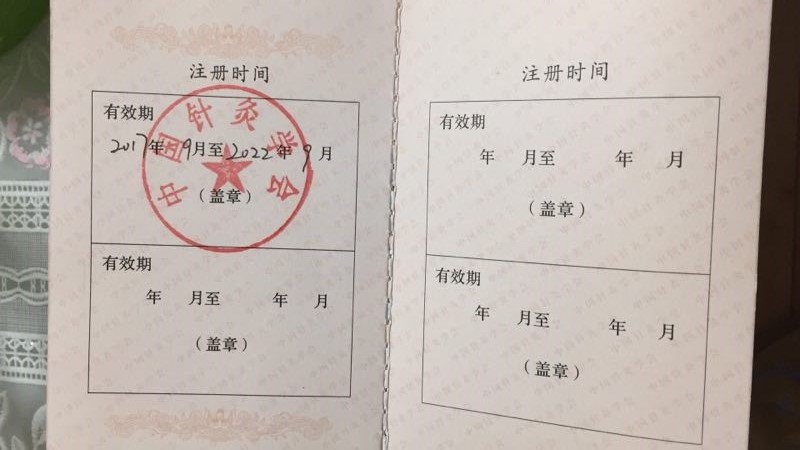 注册时间
有效期
2017年 9月至2022年 9月
（盖章）
中国针灸学会
有效期
年 月至 年 月
（盖章）
注册时间
有效期
年 月至 年 月
（盖章）
有效期
年 月至 年 月
（盖章）